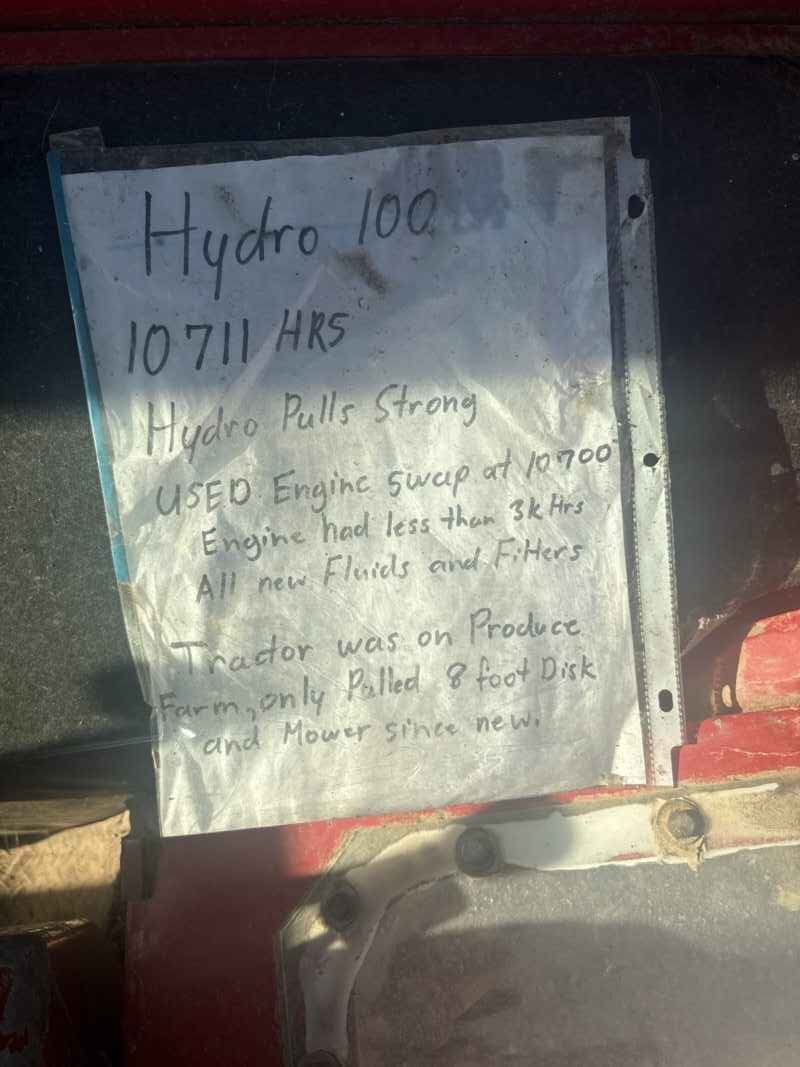 Hydro 100
10711 HRS
Hydro Pulls Strong
USED Engine swap at 10700
Engine had less than 3k Hrs
All new Fluids and Filters
Tractor was on Produce
Farm, only Pulled 8 foot Disk
and Mower since new.